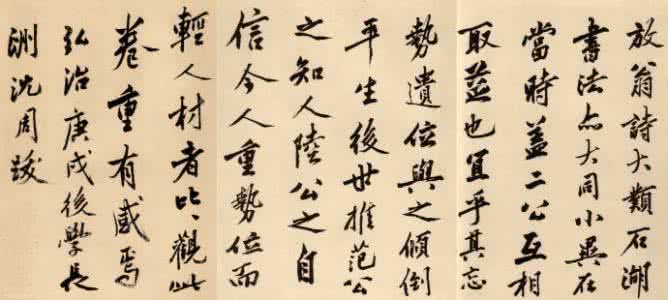 放翁詩大類石湖
書法亦大同小異在
當時蓋二公互相
取益也宜乎其忘
勢遺位與之傾倒
平生後世推范公
之知人陸公之自
信今人重勢位而
輕人材者比〻觀此
卷重有感焉
弘治庚戌後學長
洲沈周跋